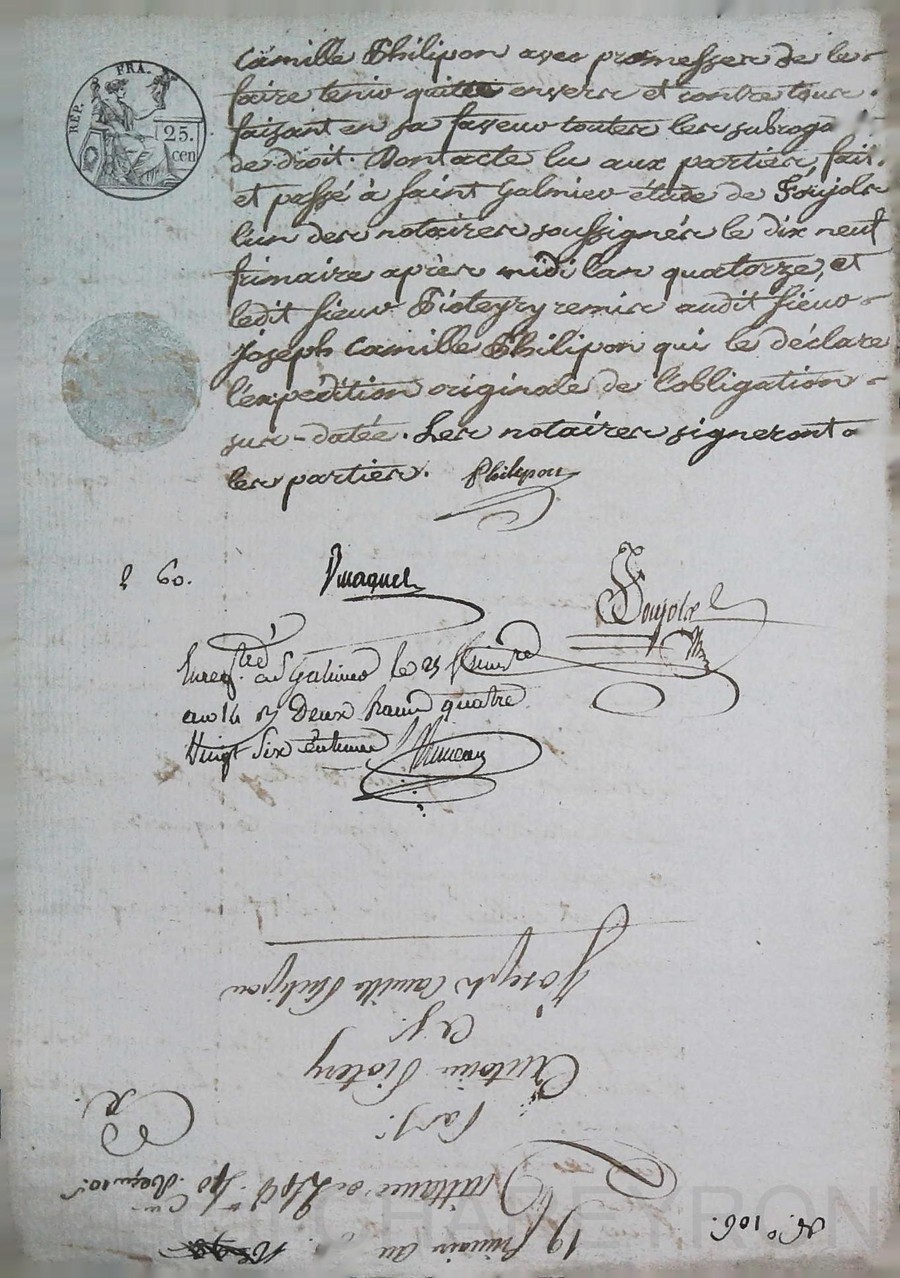 RÉP. FRA.
25.
cen
Camille Philipon avec promesser de le
faire tenir quitte enverr et contre tour.
faisant en sa faveur touter ler subroga
de droit. Dont acte lu aux partier fait.
et passé à Saint Galmier étude de Foujolr
lun der notairer soussignér le dix neuf
frimaire aprèr midi lan quatorze, et
ledit sieur Pioteyry remir audit sieur
Joseph Camille Philipon qui le déclare
lexpédition originale de lobligation
sur-datée. Ler notairer signeront
ler partier. Philipon
60.
Foujolr
Enregtré à St Galmier le 25 frimre
an 14 deux francs quatre
Vingt Six Centimes
No. 106.
19 frimaire an
quittance de
Par
Antoine Piotery
à
Joseph Camille Philipon
CHAPEYRON